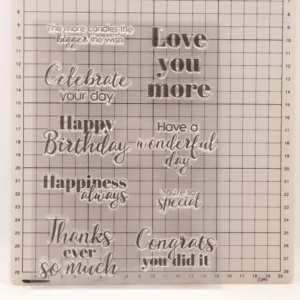 The more candles the
bigger the wish
Love
you
more
Celebrate
your day
Happy
Birthday
Have a
wonderful
day
Happiness
always
You're so
special
Thanks
ever
so much
Congrats
you did it